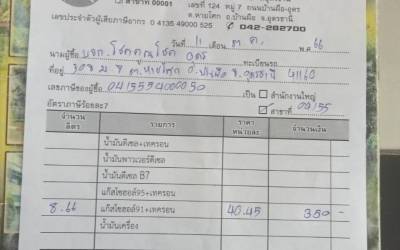 สาขาที่ 00001
เลขที่ 124 หมู่ 7 ถนนบ้านผือ-อุดร
ต.หายโศก อ.บ้านผือ จ.อุดรธานี
เลขประจำตัวผู้เสียภาษีอากร 0 4135 49000 525
042-282700
วันที่ 11 เดือน ต.ค. พ.ศ. 66
นามผู้ซื้อ บจก. โชคคูณโชค อุดร ทะเบียนรถ
ที่อยู่ 308 ม.7 ต.หายโศก อ.บ้านผือ จ.อุดรธานี 41160
เลขภาษีของผู้ซื้อ 0415554000050 เป็น สำนักงานใหญ่
อัตราภาษีร้อยละ7 สาขาที่
จำนวนลิตร รายการ ราคาหน่วยละ จำนวนเงิน
น้ำมันดีเซล+เทครอน
น้ำมันพาวเวอร์ดีเซล
น้ำมันดีเซล B7
แก๊สโซฮอล์95+เทครอน
8.66 แก๊สโซฮอล์91+เทครอน 40.45 350 -
น้ำมันเครื่อง